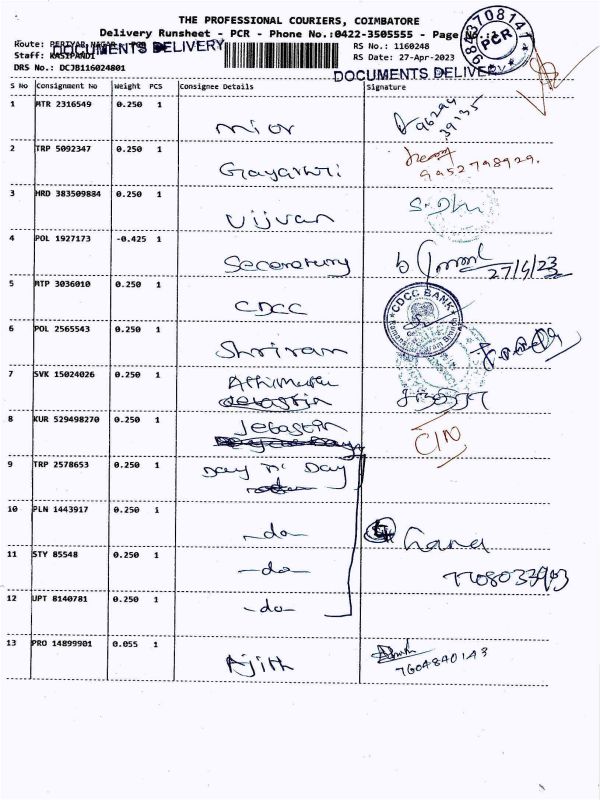 THE PROFESSIONAL COURIERS, COIMBATORE
Delivery Runsheet - PCR - Phone No.:0422-3505555 - Page No.:
9843708141
PCR
Route: PERIYAR NAGAR - PCR
DOCUMENTS DELIVERY
RS No.: 1160248
Staff: KASIPANDI
RS Date: 27-Apr-2023
DRS No.: DCJB116024801
DOCUMENTS DELIVERY
S No Consignment No Weight PCS Consignee Details Signature
1 MTR 2316549 0.250 1
mior
96294
39135
2 TRP 5092347 0.250 1
Gayathri
9952798929.
3 HRD 383509884 0.250 1
Vijvan
4 POL 1927173 -0.425 1
Seceretury
27/4/23
5 MTP 3036010 0.250 1
CDCC
CDCC BANK
6 POL 2565543 0.250 1
Shriram
7 SVK 15024026 0.250 1
Jebastin
8 KUR 529498270 0.250 1
Jebastin
CIN
9 TRP 2578653 0.250 1
Day n' Day
10 PLN 1443917 0.250 1
-do-
11 STY 85548 0.250 1
-do-
12 UPT 8140781 0.250 1
-do-
13 PRO 14899901 0.055 1
Ajith
7604840143